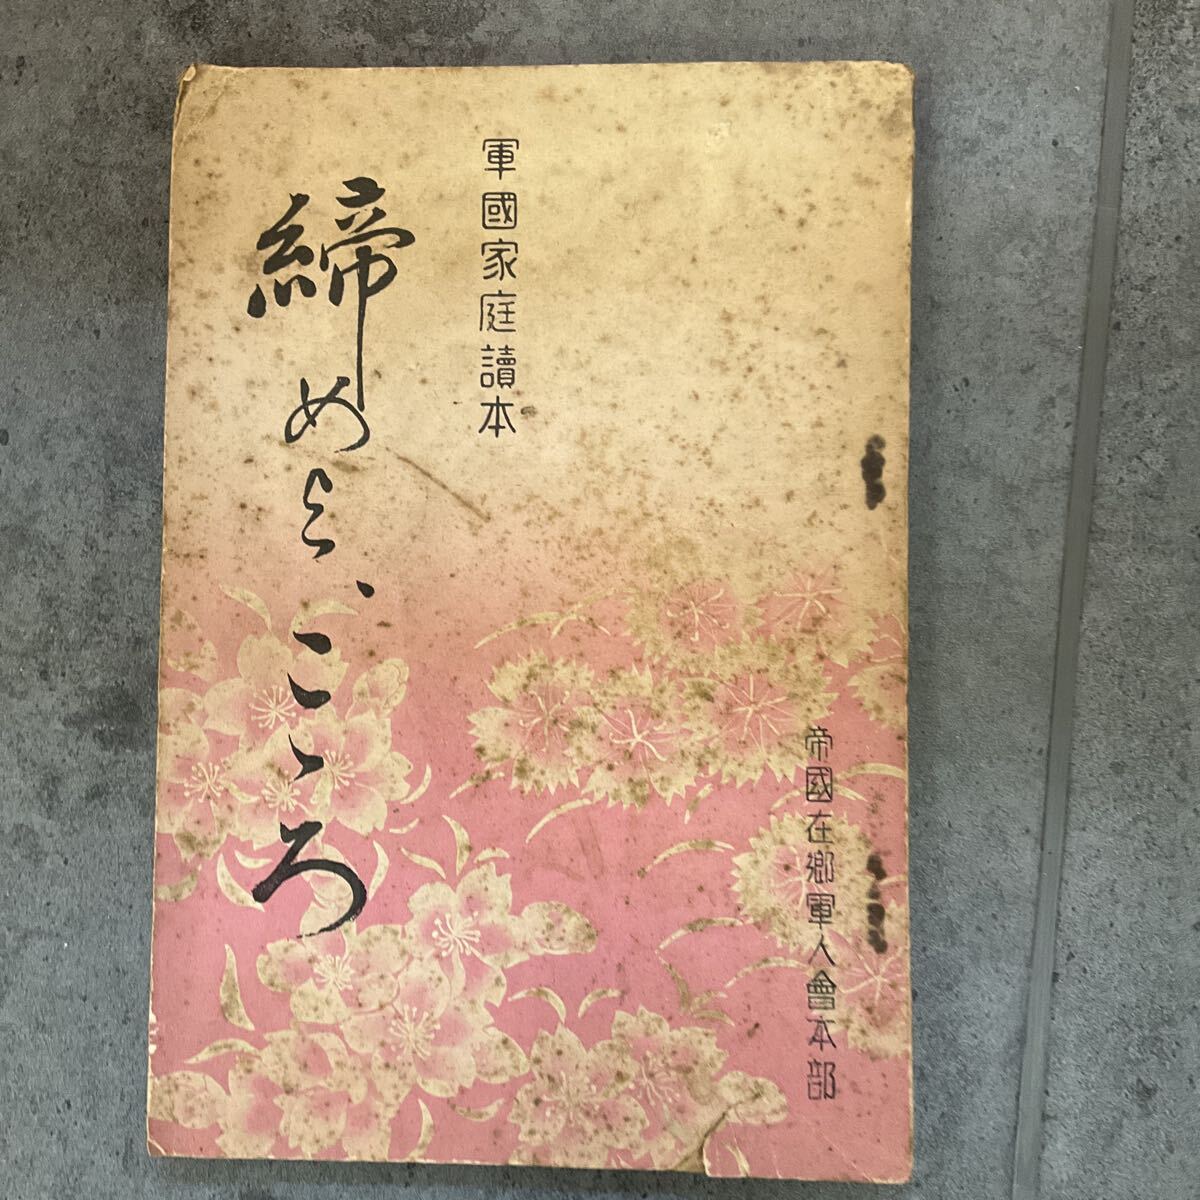 軍國家庭讀本
締めよ、こゝろ
帝國在鄉軍人會本部